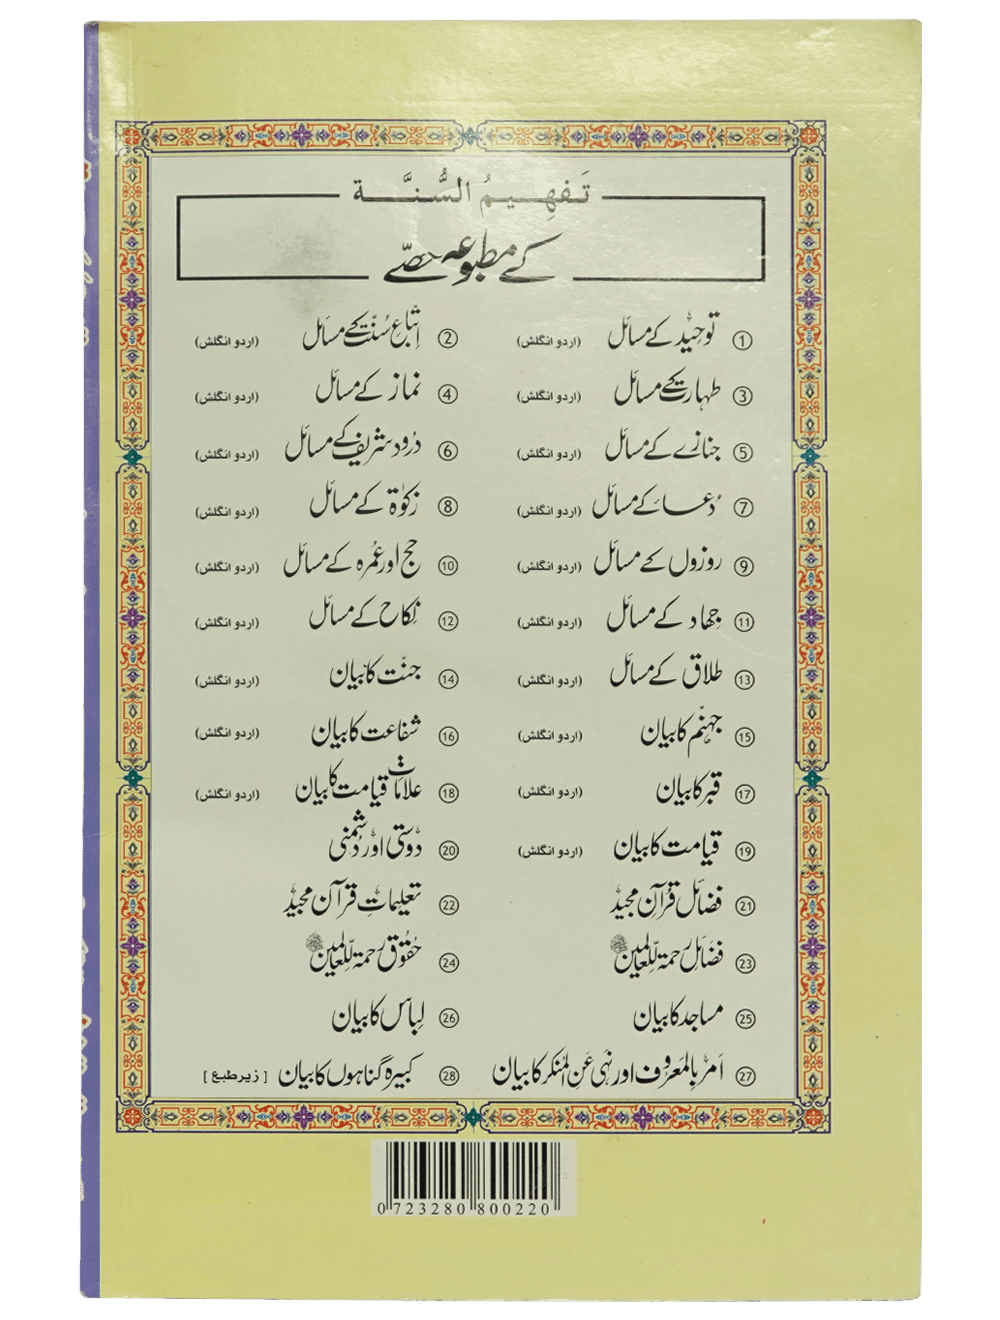 تَفهِيمُ السُّنَّة
کے مطبوعہ حصّے
① توحید کے مسائل (اردو انگلش) ② اتباعِ سُنّت کے مسائل (اردو انگلش)
③ طہارت کے مسائل (اردو انگلش) ④ نماز کے مسائل (اردو انگلش)
⑤ جنازے کے مسائل (اردو انگلش) ⑥ درود شریف کے مسائل (اردو انگلش)
⑦ دُعاء کے مسائل (اردو انگلش) ⑧ زکوٰۃ کے مسائل (اردو انگلش)
⑨ روزوں کے مسائل (اردو انگلش) ⑩ حج اور عُمرہ کے مسائل (اردو انگلش)
⑪ جہاد کے مسائل (اردو انگلش) ⑫ نکاح کے مسائل (اردو انگلش)
⑬ طلاق کے مسائل (اردو انگلش) ⑭ جنّت کا بیان (اردو انگلش)
⑮ جہنّم کا بیان (اردو انگلش) ⑯ شفاعت کا بیان (اردو انگلش)
⑰ قبر کا بیان (اردو انگلش) ⑱ علاماتِ قیامت کا بیان (اردو انگلش)
⑲ قیامت کا بیان (اردو انگلش) ⑳ دوستی اور دشمنی
㉑ فضائلِ قرآن مجید ㉒ تعلیماتِ قرآن مجید
㉓ فضائلِ رحمۃ لِّلعالمین ﷺ ㉔ حقوق رحمۃ لِّلعالمین ﷺ
㉕ مساجد کا بیان ㉖ لباس کا بیان
㉗ امر بالمعروف اور نہی عن المنکر کا بیان ㉘ کبیرہ گناہوں کا بیان [زیر طبع]
0 723280 800220